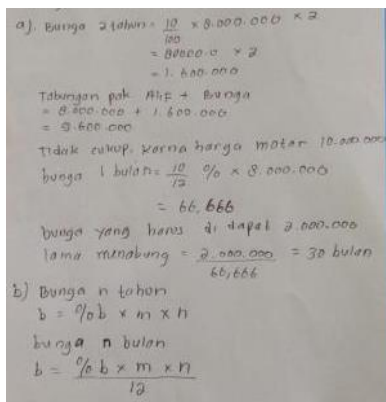 a). Bunga 2 tahun = 10/100 x 8.000.000 x 2
= 80000.0 x 2
= 1.600.000
Tabungan pak Alif + Bunga
= 8.000.000 + 1.600.000
= 9.600.000
tidak cukup. karna harga motor 10.000.000
bunga 1 bulan = 10/12 % x 8.000.000
= 66,666
bunga yang harus di dapat 2.000.000
lama menabung = 2.000.000/66,666 = 30 bulan
b) Bunga n tahun
b = %b x m x n
bunga n bulan
b = %b x m x n/12